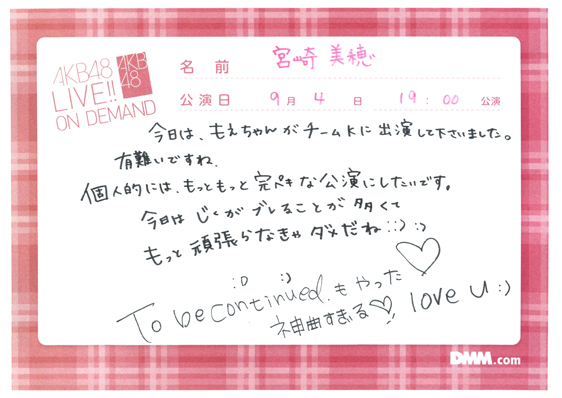 AKB48
LIVE!!
ON DEMAND
AKB
48
名前 宮崎美穂
公演日 9月4日 19:00 公演
今日は、もえちゃんがチームKに出演して下さいました。
有難いですね、
個人的には、もっともっと完ペキな公演にしたいです。
今日はじくがブレることが多くて
もっと頑張らなきゃダメだね :) :)
:D :)
To be continued.もやった
神曲すぎる♡ love u :)
DMM.com